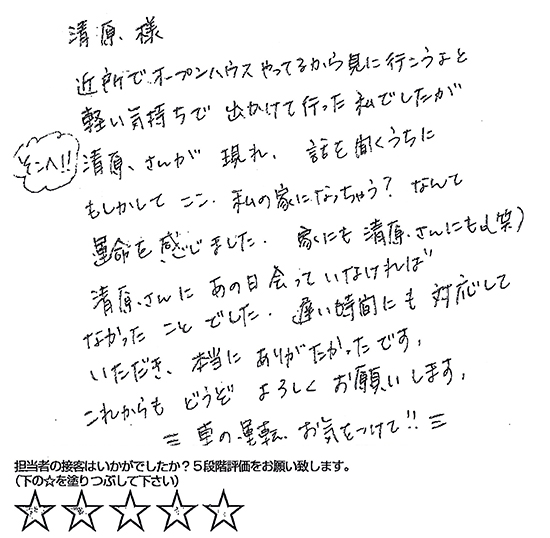 清原様
近所でオープンハウスやってるから見に行こうよと
軽い気持ちで出かけて行った私でしたが
そこへ!! 清原さんが現れ、話を聞くうちに
もしかしてここ、私の家になっちゃう?なんて
運命を感じました。家にも清原さんにも(笑)
清原さんにあの日会っていなければ
なかったことでした。遅い時間にも対応して
いただき、本当にありがたかったです。
これからもどうぞよろしくお願いします。
三 車の運転、お気をつけて!! 三
担当者の接客はいかがでしたか?5段階評価をお願い致します。
(下の☆を塗りつぶして下さい)